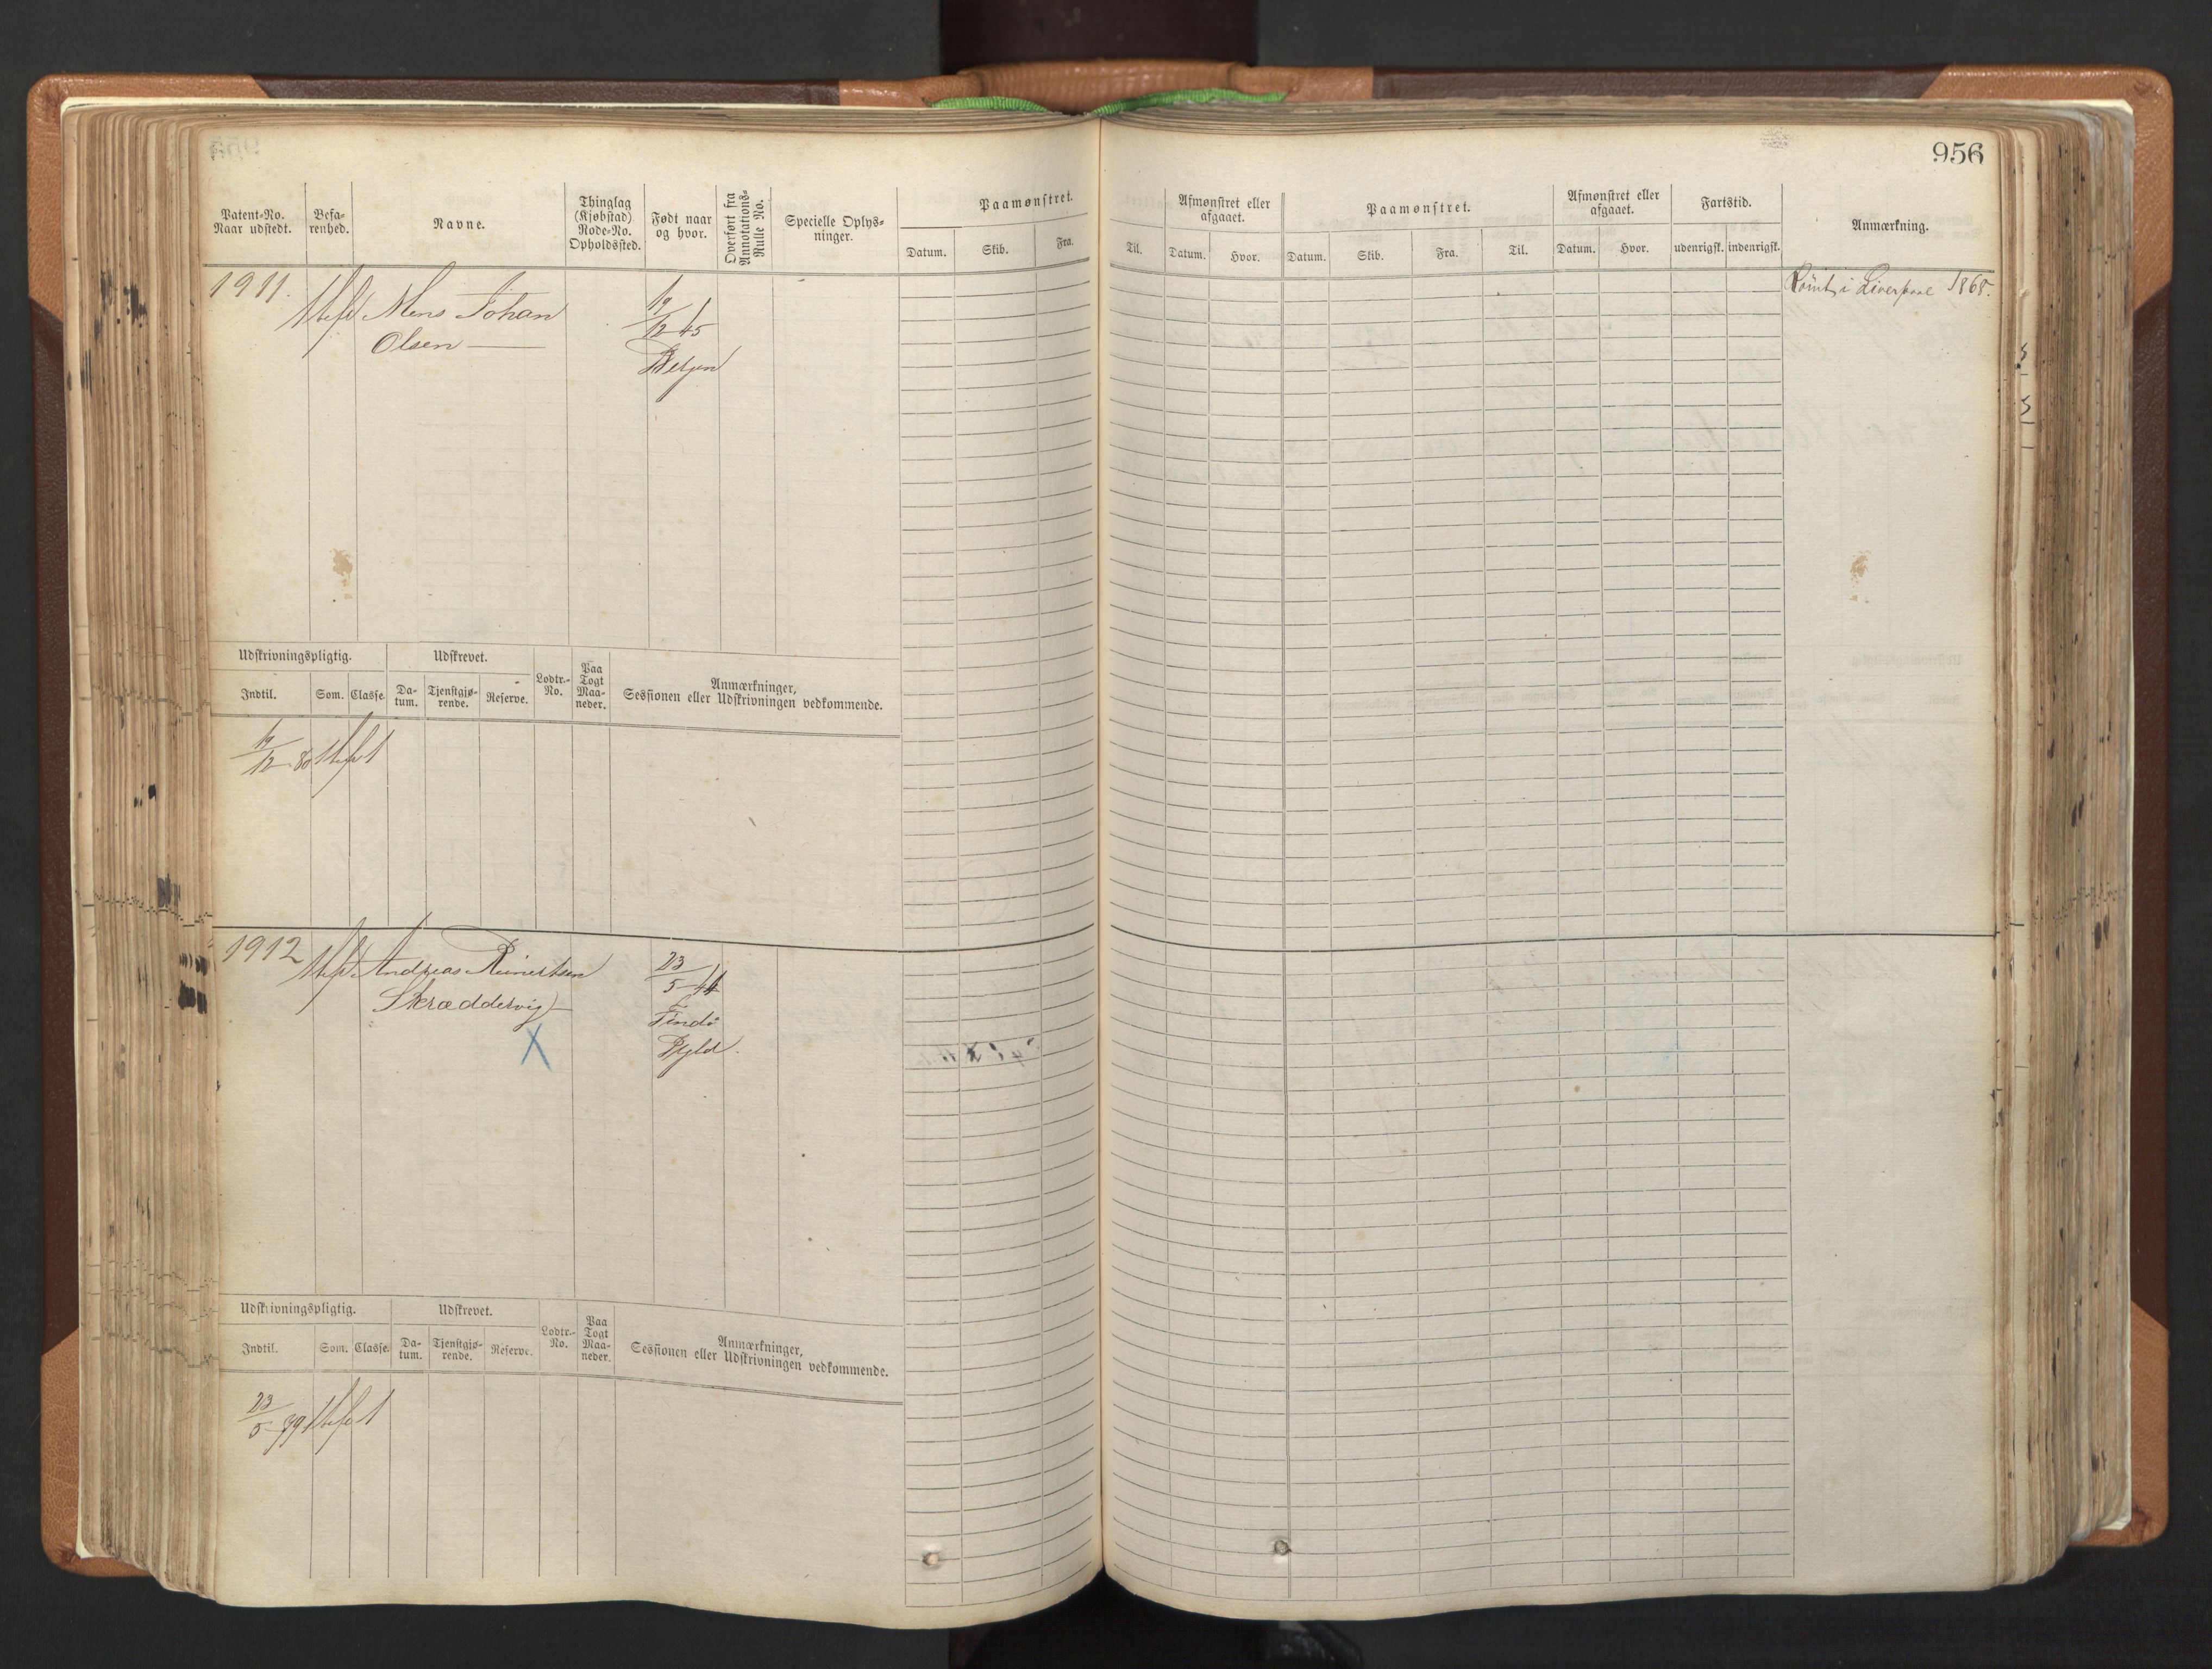 956
Patent-No. Naar udstedt.
Befarenhed.
Navne.
Thinglag (Kjøbstad) Rode-No. Opholdssted.
Født naar og hvor.
Overført fra Annotations-Rulle No.
Specielle Oplysninger.
Paamønstret.
Datum. Skib. Fra. Til.
Afmønstret eller afgaaet.
Datum. Hvor.
Paamønstret.
Datum. Skib. Fra. Til.
Afmønstret eller afgaaet.
Datum. Hvor.
Fartstid.
udenrigsk. indenrigsk.
Anmærkning.
1911.
Mons Johan
Olsen
19
12 45
Bergen
Rømt i Liverpool 1868.
Udskrivningspligtig. Udskrevet.
Indtil. Som. Classe. Datum. Tjenstgjørende. Reserve. Lodtr.-No. Paa Togt Maaneder.
Anmærkninger,
Sessionen eller Udskrivningen vedkommende.
19
12 80
1912
Andreas Reinertsen
Skræddervig
X
23
5 44
Findö
Ryfld.
Udskrivningspligtig. Udskrevet.
Indtil. Som. Classe. Datum. Tjenstgjørende. Reserve. Lodtr.-No. Paa Togt Maaneder.
Anmærkninger,
Sessionen eller Udskrivningen vedkommende.
23
5 79